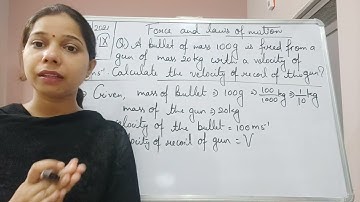 2021
Force and laws of motion
IX
Q) A bullet of mass 100g is fired from a
gun of mass 20kg with a velocity of
ms⁻¹. Calculate the velocity of recoil of the gun?
Given, mass of bullet ⇒ 100g ⇒ 100/1000 kg ⇒ 1/10 kg
mass of the gun ⇒ 20kg
velocity of the bullet = 100ms⁻¹
velocity of recoil of gun = V